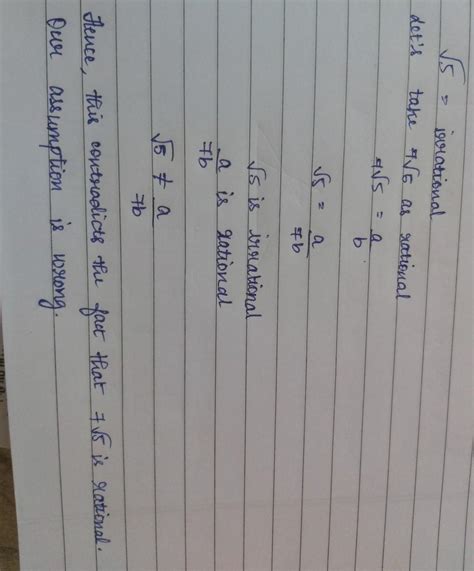 √5 = irrational
Let's take 7√5 as rational
7√5 = a/b
√5 = a/7b
√5 is irrational
a/7b is rational
√5 ≠ a/7b
Hence, this contradicts the fact that 7√5 is rational.
Our assumption is wrong.